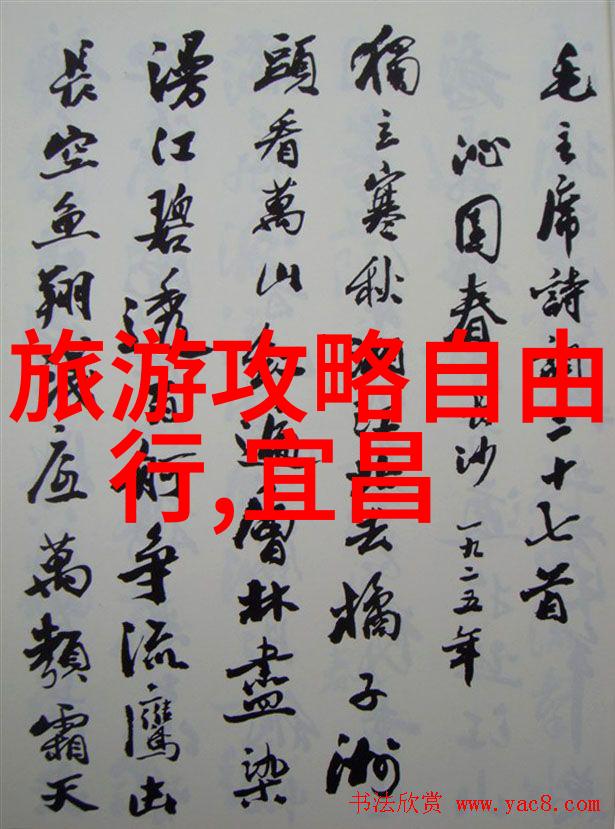 毛主席詩詞二十七首
沁園春 長沙 一九二五年
獨立寒秋湘江北去橘子洲
頭看萬山紅遍層林盡染
漫江碧透百舸争流鷹击
長空魚翔淺底萬類霜天
旅游攻略自由
行,宜昌
书法欣赏 www.yac8.com